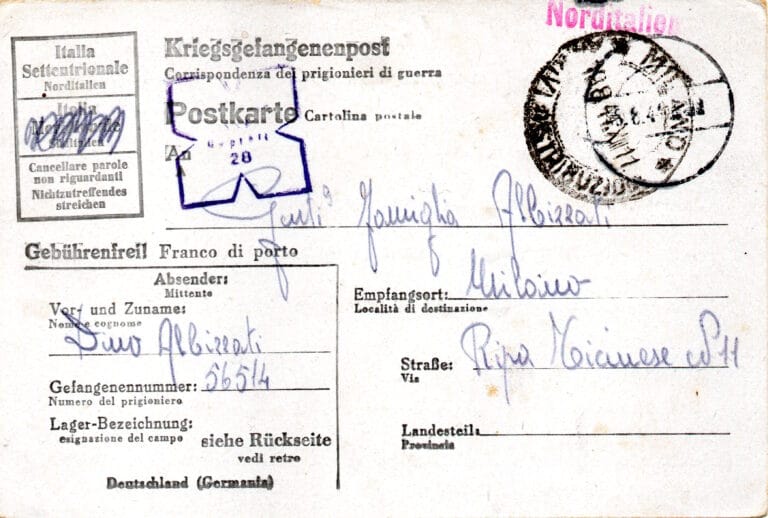 Norditalien
Italia
Settentrionale
Norditalien
Italia
Süditalien
Cancellare parole
non riguardanti
Nichtzutreffendes
streichen
Kriegsgefangenenpost
Corrispondenza dei prigionieri di guerra
Postkarte Cartolina postale
An
Geprüft
28
MILANO
Gent. Famiglia Albizzati
Gebührenfrei! Franco di porto
Absender:
Mittente
Vor- und Zuname:
Nome e cognome
Dino Albizzati
Gefangenennummer: 56514
Numero del prigioniero
Lager-Bezeichnung:
esignazione del campo
siehe Rückseite
vedi retro
Deutschland (Germania)
Empfangsort: Milano
Località di destinazione
Straße: Ripa Ticinese N 11
Via
Landesteil:
Provincia